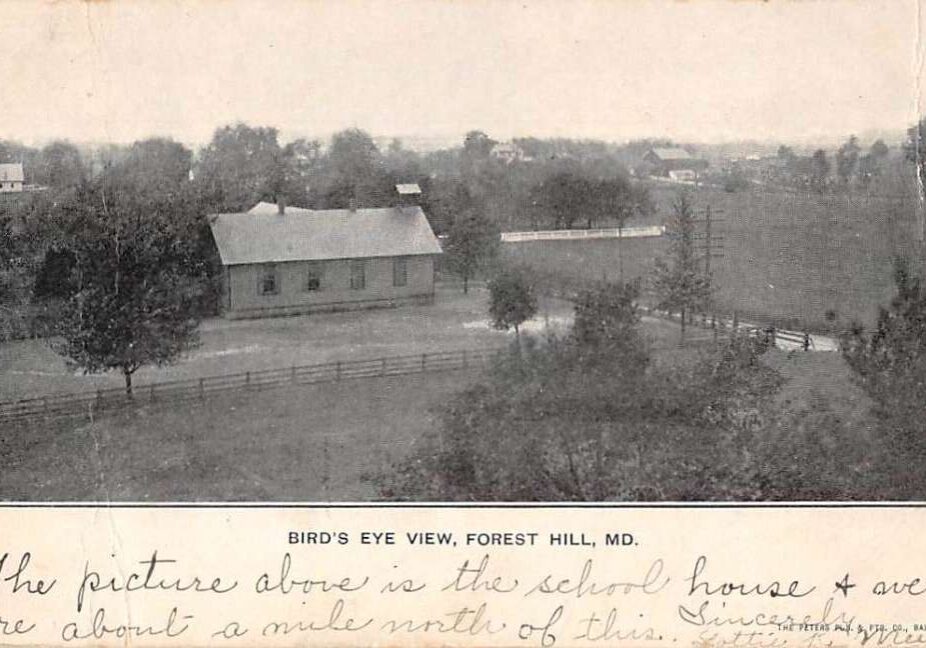 BIRD'S EYE VIEW, FOREST HILL, MD.
The picture above is the school house & we
re about a mile north of this. Sincerely
THE PETERS PUB. & PTG. CO., BA
Lottie